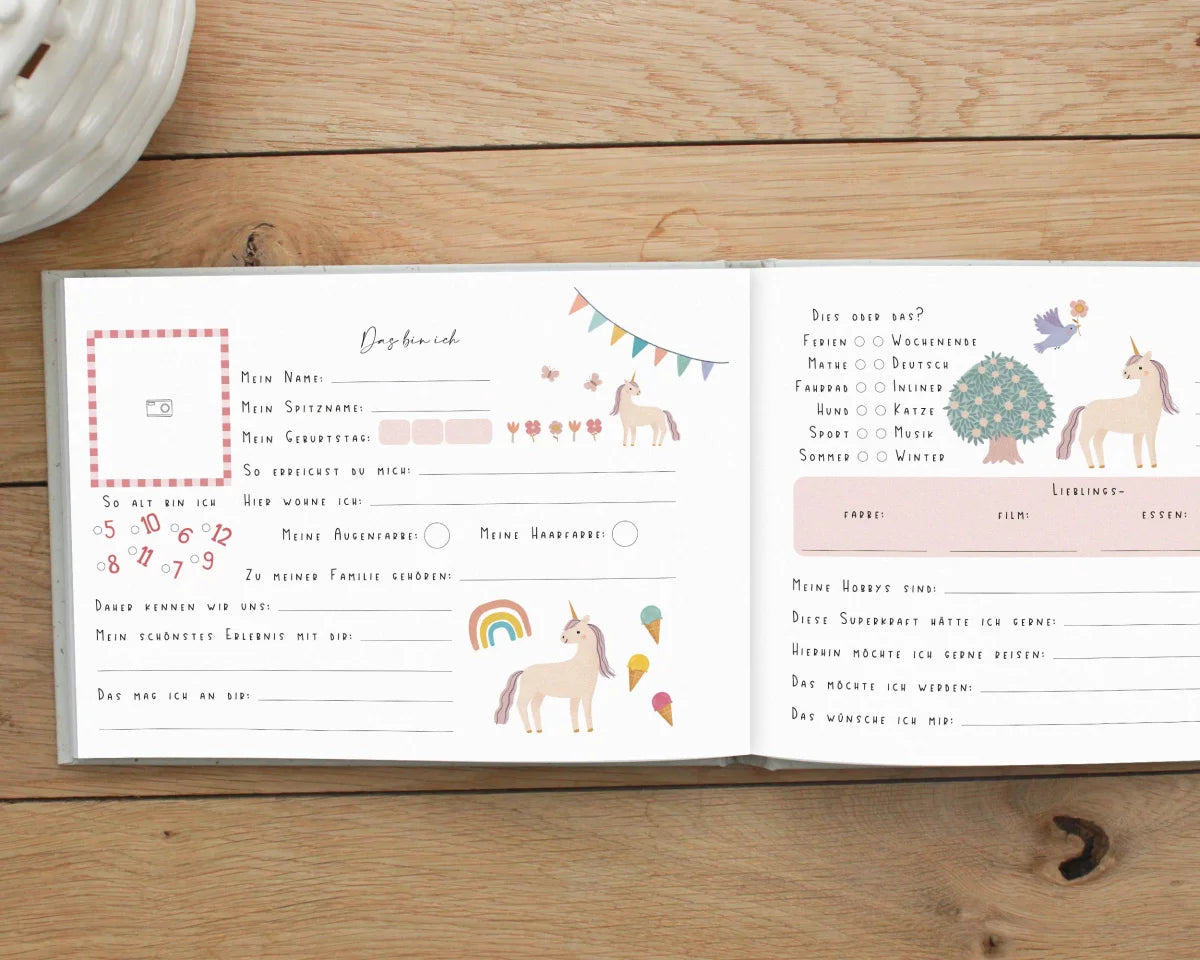 Das bin ich
Mein Name:
Mein Spitzname:
Mein Geburtstag:
So erreichst du mich:
Hier wohne ich:
So alt bin ich
5 10 6 12
8 11 7 9
Meine Augenfarbe: Meine Haarfarbe:
Zu meiner Familie gehören:
Daher kennen wir uns:
Mein schönstes Erlebnis mit dir:
Das mag ich an dir:
Dies oder das?
Ferien Wochenende
Mathe Deutsch
Fahrrad Inliner
Hund Katze
Sport Musik
Sommer Winter
Lieblings-
Farbe: Film: Essen:
Meine Hobbys sind:
Diese Superkraft hätte ich gerne:
Hierhin möchte ich gerne reisen:
Das möchte ich werden:
Das wünsche ich mir: